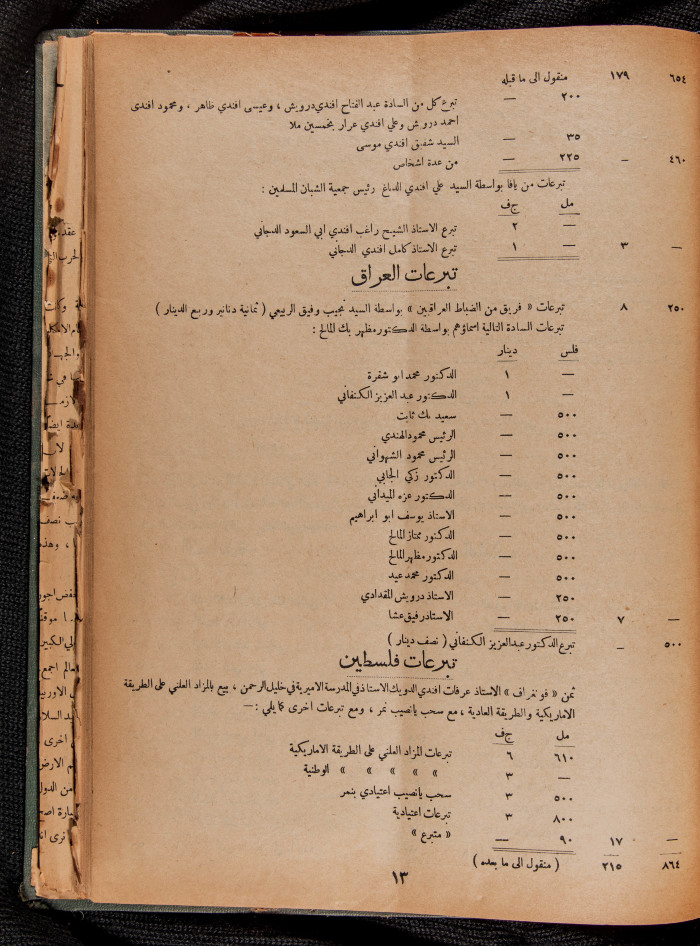 ٦٥٤ ١٧٩ منقول الى ما قبله
٢٠٠ — تبرع كل من السادة عبد الفتاح افندي درويش ، وعيسى افندي طاهر ، ومحمود افندي
احمد درويش وعلي افندي عرار بخمسين ملا
٣٥ — السيد شفيق افندي موسى
٤٦٠ — ٢٢٥ — من عدة اشخاص
تبرعات من يافا بواسطة السيد علي افندي الدباغ رئيس جمعية الشبان المسلمين :
مل ج ف
— ٢ تبرع الاستاذ الشيخ راغب افندي ابي السعود الدجاني
— ٣ — ١ تبرع الاستاذ كامل افندي الدجاني
تبرعات العراق
٢٥٠ ٨ تبرعات « فريق من الضباط العراقيين » بواسطة السيد نجيب وفيق الربيعي ( ثمانية دنانير وربع الدينار )
تبرعات السادة التالية اسماؤهم بواسطة الدكتور مظهر بك المالح :
فلس دينار
— ١ الدكتور محمد ابو شقرة
— ١ الدكتور عبد العزيز الكنفاني
٥٠٠ — سعيد بك ثابت
٥٠٠ — الرئيس محمود الهندي
٥٠٠ — الرئيس محمود الشهواني
٥٠٠ — الدكتور زكي الجابي
٥٠٠ — الدكتور عزة الميداني
٥٠٠ — الاستاذ يوسف ابو ابراهيم
٥٠٠ — الدكتور ممتاز المالح
٥٠٠ — الدكتور مظهر المالح
٥٠٠ — الدكتور محمد عيد
٢٥٠ — الاستاذ درويش المقدادي
— ٧ ٢٥٠ — الاستاذ رفيق عشا
٥٠٠ — تبرع الدكتور عبد العزيز الكنفاني ( نصف دينار )
تبرعات فلسطين
ثمن « فونغراف » الاستاذ عرفات افندي الدويك الاستاذ في المدرسة الاميرية في خليل الرحمن ، بيع بالمزاد العلني على الطريقة
الاماريكية والطريقة العادية ، مع سحب يانصيب نمر ، ومع تبرعات اخرى كما يلي : —
مل ج ف
٦١٠ ٦ تبرعات المزاد العلني على الطريقة الاماريكية
— ٣ » » » » » الوطنية
٥٠٠ ٣ سحب يانصيب اعتيادي بنمر
٨٠٠ ٣ تبرعات اعتيادية
— ١٧ ٩٠ — « متبرع »
٨٦٤ ٢١٥ ( منقول الى ما بعده )
١٣